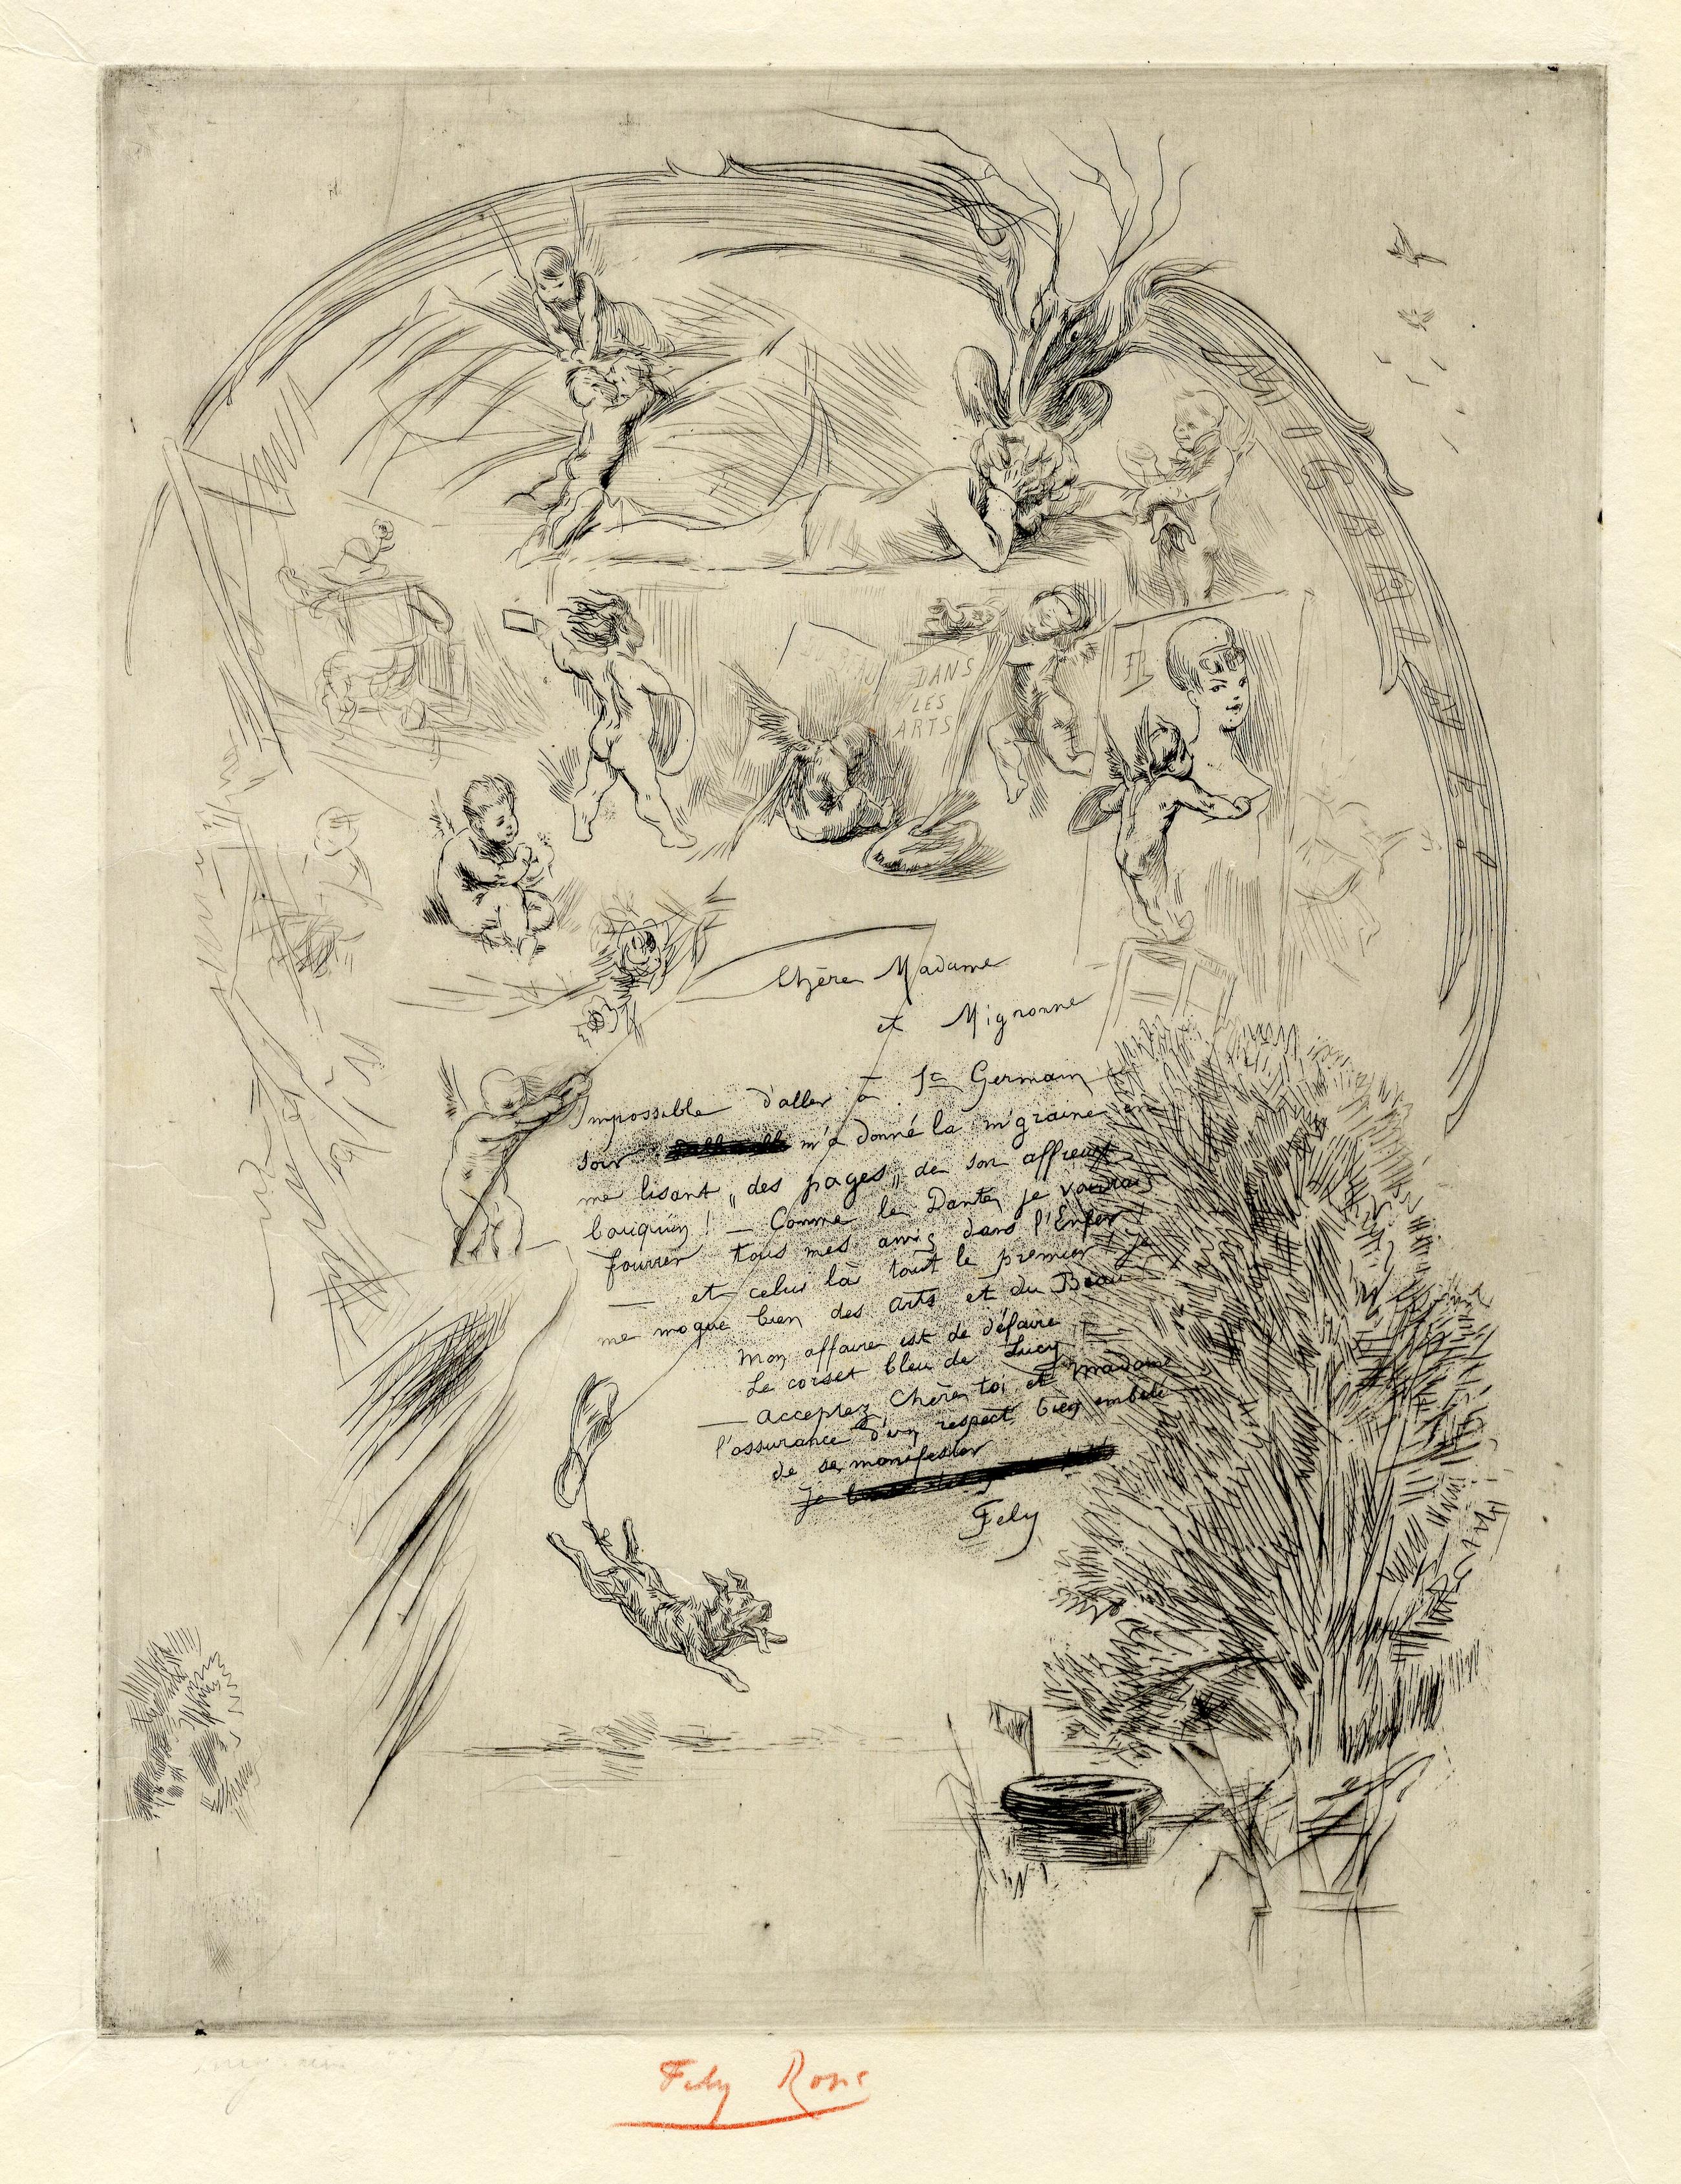 MIGRAINE!
DU BEAU
DANS
LES
ARTS
FR
Chère Madame
et Mignonne
Impossible d'aller à St Germain ce
soir m'a donné la migraine en
me lisant „des pages„ de son affreux
bouquin! — Comme le Dante, je voudrais
fourrer tous mes amis dans l'Enfer
— et celui là tout le premier! Je
me moque bien des arts et du Beau
Mon affaire est de défaire
Le corset bleu de Lucy
— acceptez, Chère, toi et madame
l'assurance d'un respect, bien embêté
de se manifester
je
Fely
Fely Rops